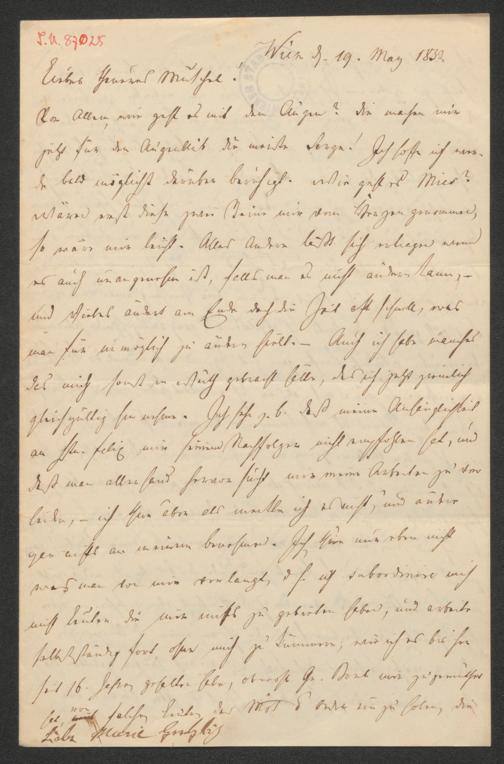 I.N. 87028
Wien d. 19. May 1832
Liebes theueres Muscherl.
Vor Allem, wie geht es mit den Augen? Die machen mir
jetzt für den Augenblik die meiste Sorge! Ich hoffe ich wer-
de bald möglichst darüber beruhigt. Wie geht es Mies?
Wären erst diese zwei Steine mir vom Herzen genommen,
so wäre mir leicht. Alles Andere läßt sich ertragen wenn
es auch unangenehm ist, falls man es nicht ändern kann, –
und Vieles ändert am Ende doch die Zeit oft schnell, was
man für unmöglich zu ändern hielt. – Auch ich habe manches
das mich sonst in Wuth gebracht hätte, das ich jetzt ziemlich
gleichgültig hin nehme. Ich sehe z. b. daß meine Anhänglichkeit
an Hrn. Felix mir seinem Nachfolger nicht empfohlen hat, und
daß man allerhand hervor sucht mir meine Arbeiten zu ver
leiden, – ich thue aber als merkte ich es nicht, und ändere
gar nichts an meinem benehmen. Ich thue nun eben nicht
was man von mir verlangt, d. h. ich subordinire mich
nicht Leuten die mir nichts zu gebieten haben, und arbeite
selbstständig fort ohne mich zu kümmern, wie ich es bis her
seit 16 Jahren gehalten habe, obwohl
von solchen Leuten
Liebe Marie